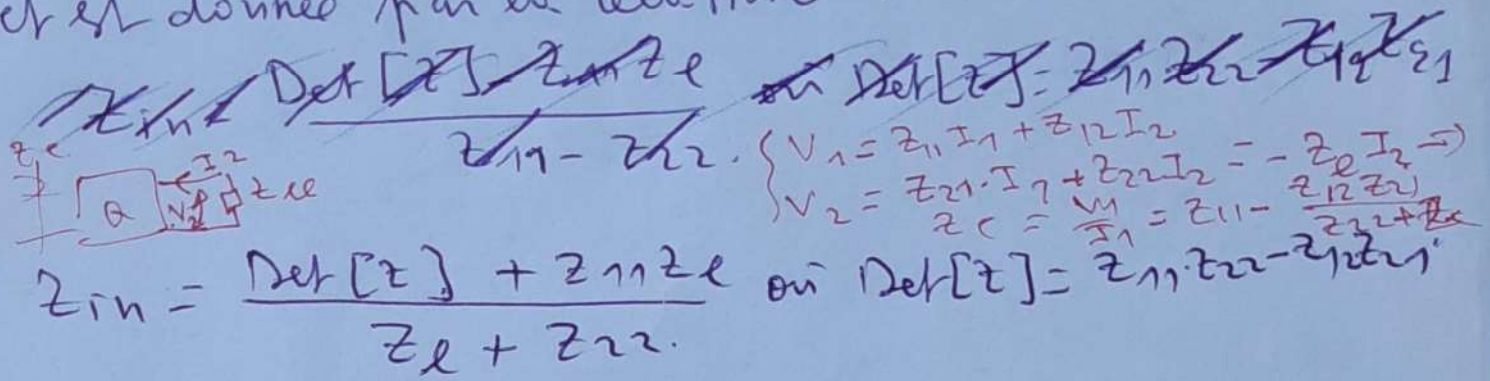 est donnée par la
Zin = Det[Z] Z11 Zl / Z11 - Z22. où Det[Z] = Z11 Z22 - Z12 Z21
{ V1 = Z11 I1 + Z12 I2
V2 = Z21 . I1 + Z22 I2 = - Zl I2 ⇒
Ze = V1 / I1 = Z11 - Z12 Z21 / Z22 + Zc
Ze Q I2 V2 Zl
Zin = Det[Z] + Z11 Zl / Zl + Z22. où Det[Z] = Z11 . Z22 - Z12 Z21.